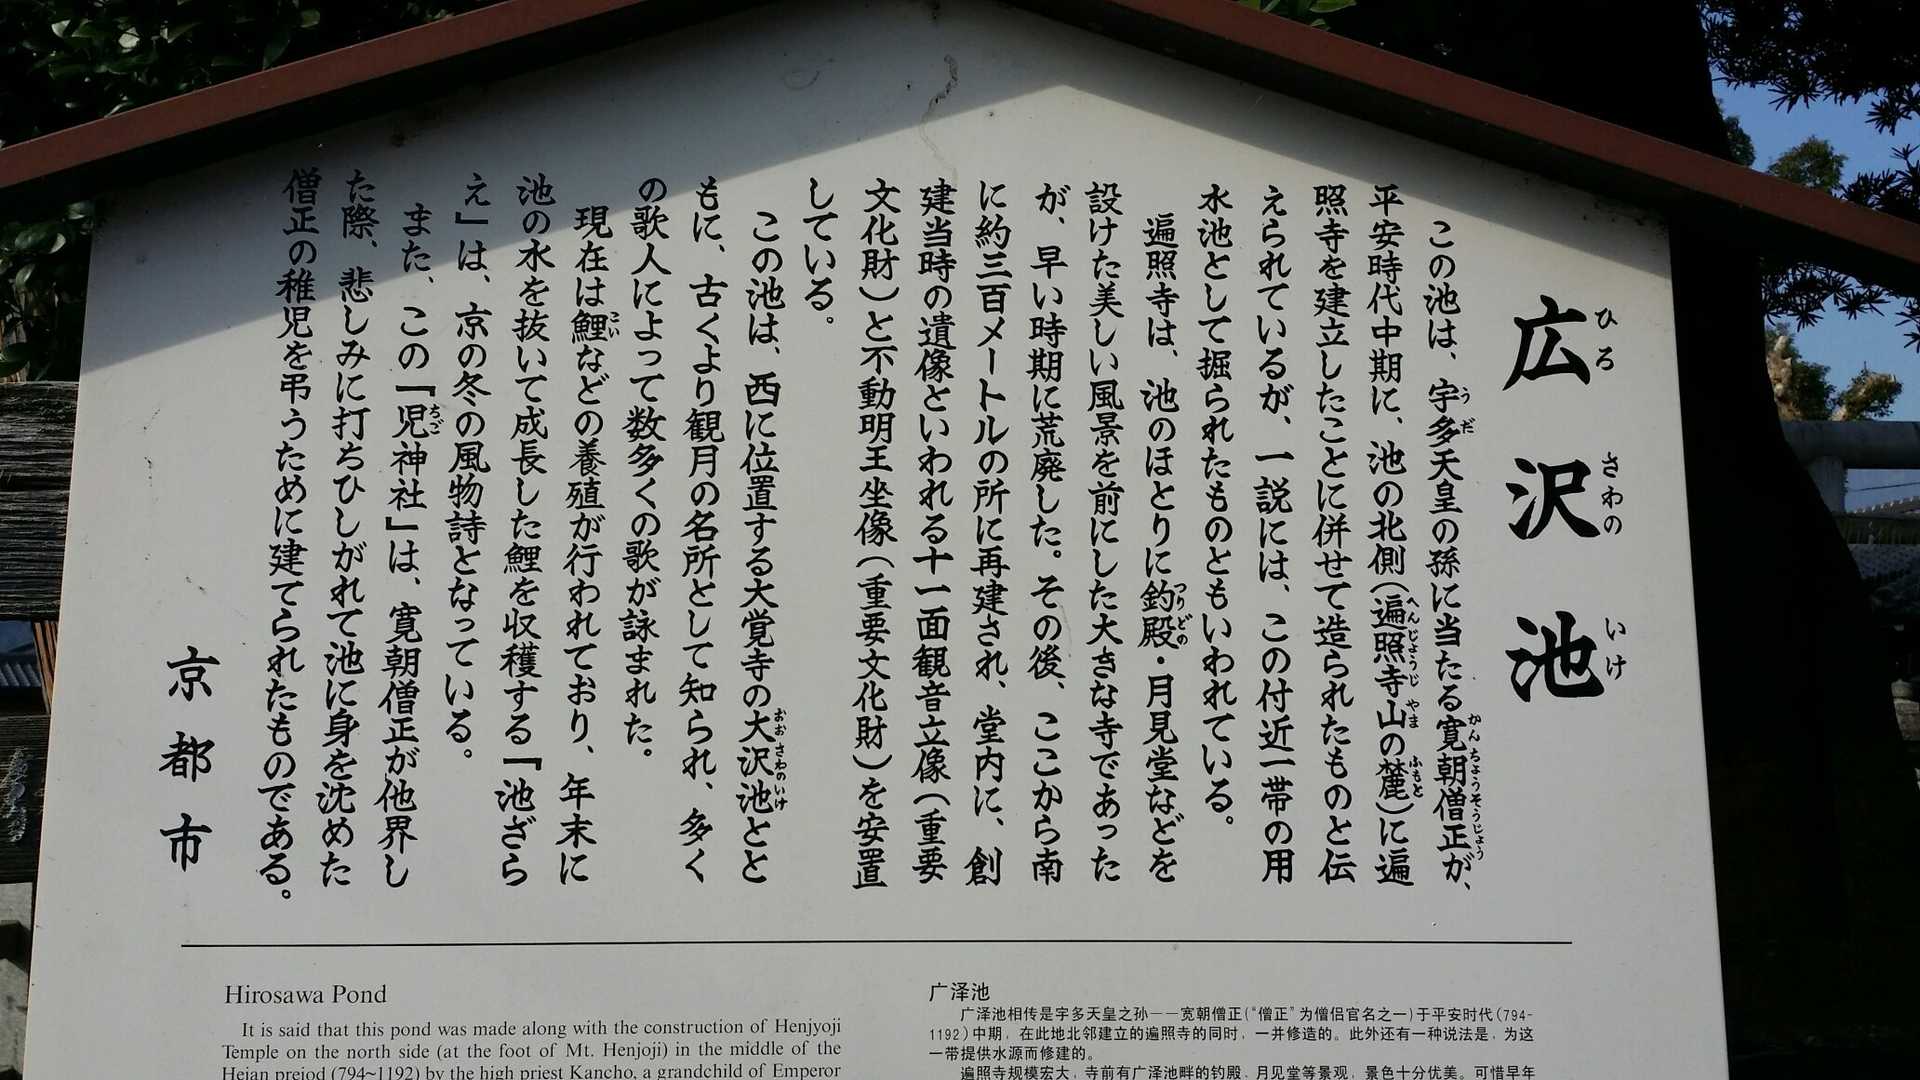 広沢池
ひろ さわの いけ
この池は、宇多天皇の孫に当たる寛朝僧正が、
うだ かんちょうそうじょう
平安時代中期に、池の北側(遍照寺山の麓)に遍
へんじょうじ やま ふもと
照寺を建立したことに併せて造られたものと伝
えられているが、一説には、この付近一帯の用
水池として掘られたものともいわれている。
遍照寺は、池のほとりに釣殿・月見堂などを
つりどの
設けた美しい風景を前にした大きな寺であった
が、早い時期に荒廃した。その後、ここから南
に約三百メートルの所に再建され、堂内に、創
建当時の遺像といわれる十一面観音立像(重要
文化財)と不動明王坐像(重要文化財)を安置
している。
この池は、西に位置する大覚寺の大沢池とと
おおさわのいけ
もに、古くより観月の名所として知られ、多く
の歌人によって数多くの歌が詠まれた。
現在は鯉などの養殖が行われており、年末に
こい
池の水を抜いて成長した鯉を収穫する「池ざら
え」は、京の冬の風物詩となっている。
また、この「児神社」は、寛朝僧正が他界し
ちご
た際、悲しみに打ちひしがれて池に身を沈めた
僧正の稚児を弔うために建てられたものである。
京都市
Hirosawa Pond
It is said that this pond was made along with the construction of Henjyoji
Temple on the north side (at the foot of Mt. Henjoji) in the middle of the
Heian prejod (794~1192) by the high priest Kancho, a grandchild of Emperor
广泽池
广泽池相传是宇多天皇之孙——宽朝僧正(“僧正”为僧侣官名之一)于平安时代(794-
1192)中期，在此地北邻建立的遍照寺的同时，一并修造的。此外还有一种说法是，为这
一带提供水源而修建的。
遍照寺规模宏大，寺前有广泽池畔的钓殿，月见堂等景观，景色十分优美。可惜早年